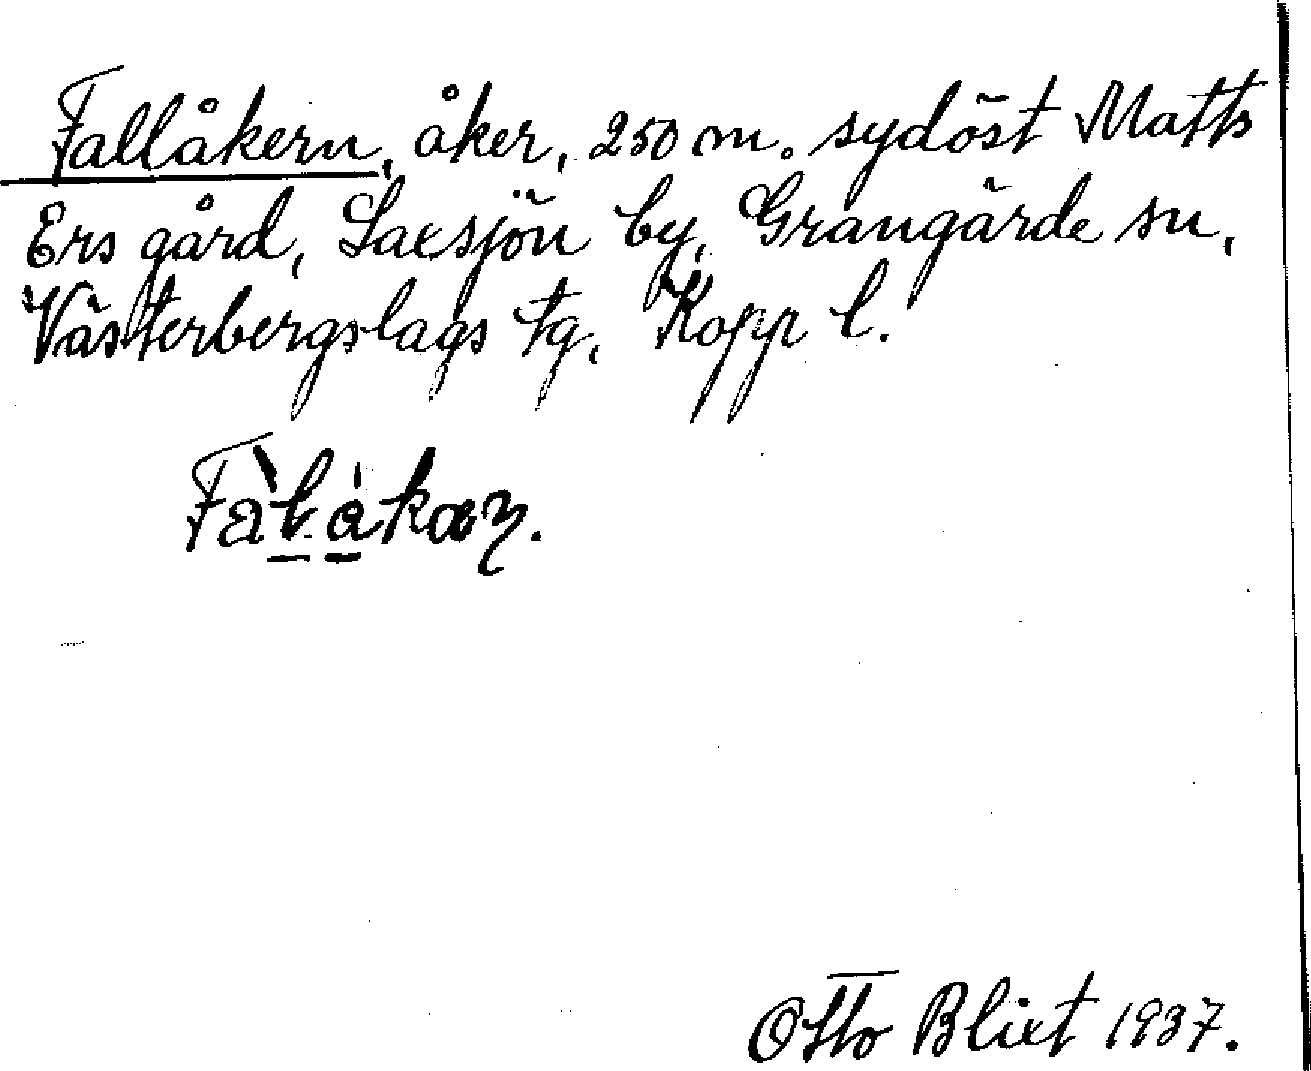 Fallåkern, åker, 250 m. sydöst Matts
Ers gård, Saxsjön by, Grangärde sn,
Västerbergslags tg, Kopp l.
Fàlåkaꞃ.
Otto Blixt 1937.